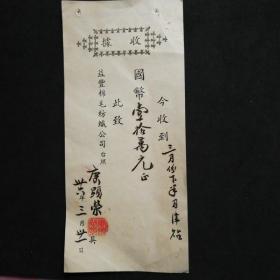 收據
今收到三月份下半月津貼
國幣壹拾萬元正
此致
益豐棉毛紡織公司台照
唐顯榮 具
卅六年三月卅一日